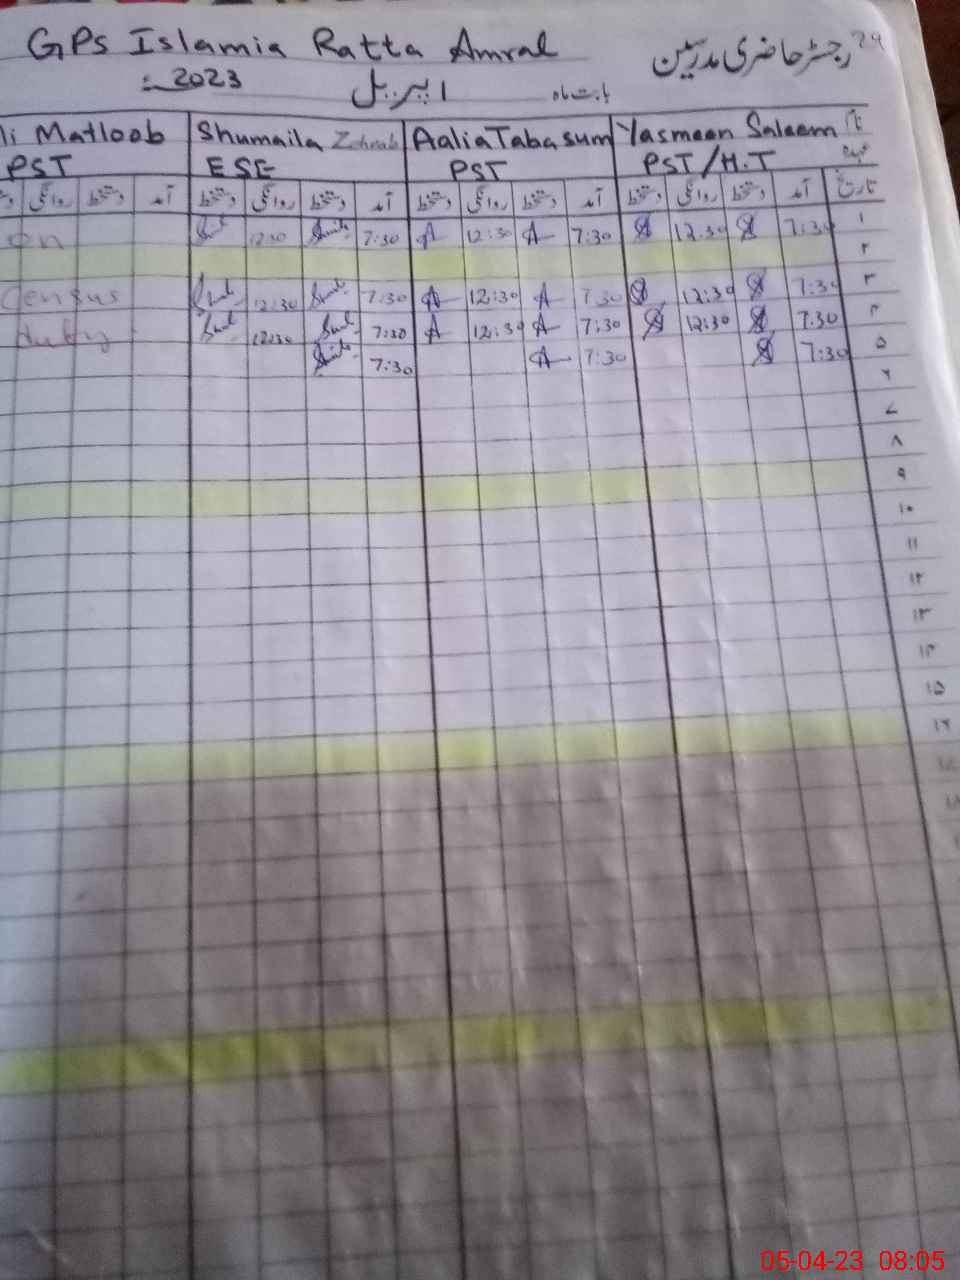 GPS Islamia Ratta Amral
رجسٹر حاضری مدرسین 29
2023
بابت ماہ اپریل
li Matloob Shumaila Zohrab Aalia Tabasum Yasmeen Saleem نام
PST ESE PST PST/H.T عہدہ
روانگی دستخط آمد دستخط روانگی دستخط آمد دستخط روانگی دستخط آمد دستخط روانگی دستخط آمد تاریخ
on 12:30 7:30 A 12:30 A 7:30 12:30 7:30 ۱
۲
Census 12:30 7:30 A 12:30 A 7:30 12:30 7:30 ۳
duty 12:30 7:30 A 12:30 A 7:30 12:30 7:30 ۴
7:30 A 7:30 7:30 ۵
۶
۷
۸
۹
۱۰
۱۱
۱۲
۱۳
۱۴
۱۵
۱۶
۱۷
۱۸
05-04-23 08:05